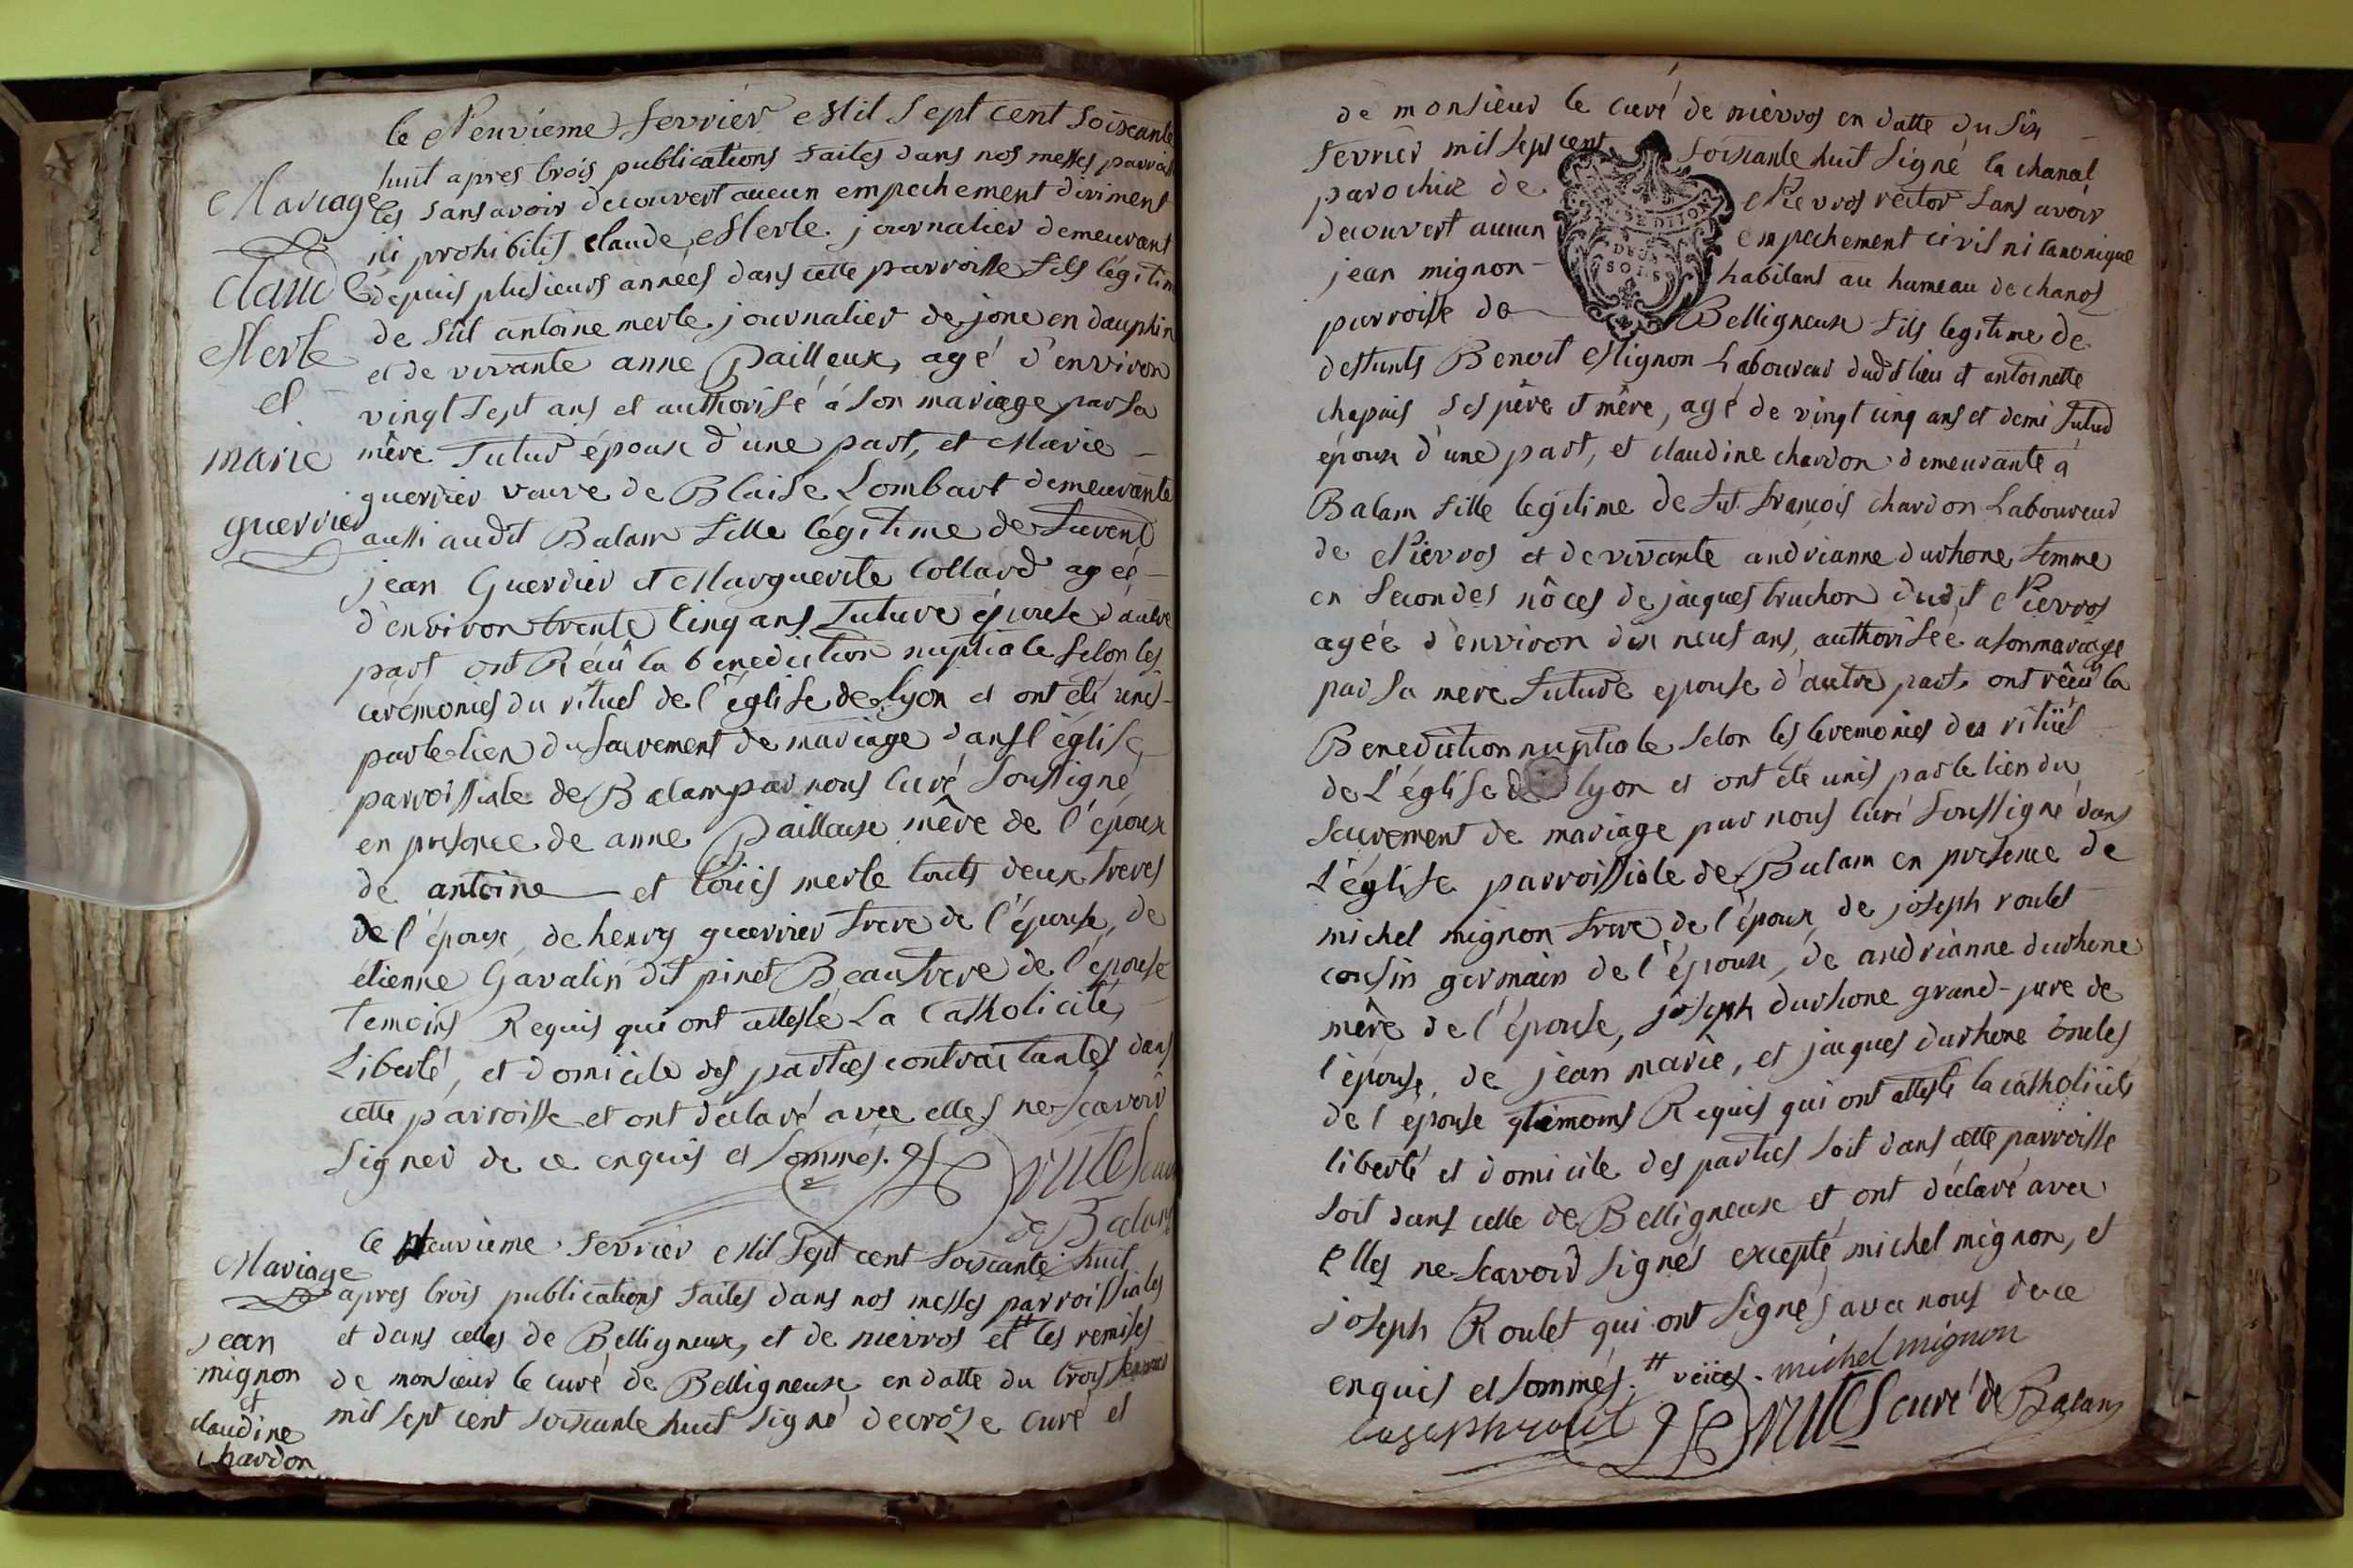 le Neuvieme fevrier Mil Sept cent soixante
huit apres trois publications faites dans nos messes parroissia
les sans avoir decouvert aucun empechement diriment
ni prohibitif Claude Merle journalier demeurant
depuis plusieurs années dans cette parroisse fils légitime
de fut antoine merle journalier de jone en dauphin
et de vivante anne pailleux, agé d'environ
vingt sept ans et authorisé à son mariage par sa
mère futur époux d'une part, et Marie
guerrier veuve de Blaise Lombart demeurante
aussi audit Balam fille légitime de furent
jean Guerrier et Marguerite Collard agéé
d'environ trente cinq ans future épouse d'autre
part ont Réçu la benediction nuptiale selon les
cérémonies du rituel de l'église de lyon et ont été unis
par le lien du sacrement de mariage dans l'église
parroissiale de Balam par nous curé soussigné
en presence de anne pailleux mère de l'époux
de antoine et Louis merle touts deux freres
de l'époux, de henry guerrier frere de l'épouse, de
étienne Gavalin dit pinet Beaufrere de l'épouse
temoins Requis qui ont attesté La Catholicité,
Liberté, et domicile des parties contractantes dans
cette parroisse et ont déclaré avec elles ne scavoir
signer de ce enquis et sommés.
de Balam
Mariage
Claude
Merle
et
marie
guerrier
le Neuvieme fevrier Mil Sept cent soixante huit
apres trois publications faites dans nos messes parroissiales
et dans celles de Belligneux, et de nievros et ++ les remises
de monsieur le curé de Belligneux en datte du trois fevrier
mil sept cent soixante huit signé decroze curé et
Mariage
jean
mignon
et
claudine
chardon
de monsieur le curé de nievros en datte du six
fevrier mil sept cent soixante huit signé la chanal
parochiæ de Nievros rector sans avoir
decouvert aucun empechement civil ni canonique
jean mignon habitant au hameau de chanos
parroisse de Belligneux fils legitime de
deffunts Benoit Mignon Laboureur dudit lieu et antoinette
chapuis ses père et mère, agé de vingt cinq ans et demi futur
époux d'une part, et claudine chardon demeurante à
Balam fille legitime de fut françois chardon Laboureur
de Nievros et de vivante andrianne durhone femme
en secondes nôces de jacques truchon dudit Nievros
agéé d'environ dix neuf ans, authoriséé a son mariage
par sa mere future epouse d'autre part, ont réçu la
Benediction nuptiale selon les ceremonies du rituel
de L'église de lyon et ont été unis par le lien du
sacrement de mariage par nous curé soussigné dans
L'église parroissiale de Balam en presence de
michel mignon frere de l'époux, de joseph roulet
cousin germain de l'époux, de andrianne durhone
mère de l'épouse, joseph durhone grand-pere de
l'épouse, de jean marie, et jacques durhone oncles
de l'épouse témoins Requis qui ont attesté la catholicité
liberté et domicile des parties soit dans cette parroisse
soit dans celle de Belligneux et ont déclaré avec
Elles ne scavoir signer excepté michel mignon, et
joseph Roulet qui ont signés avec nous de ce
enquis et sommés. ++ veües. michel mignon
curé de Balam
DEUX
SOLS